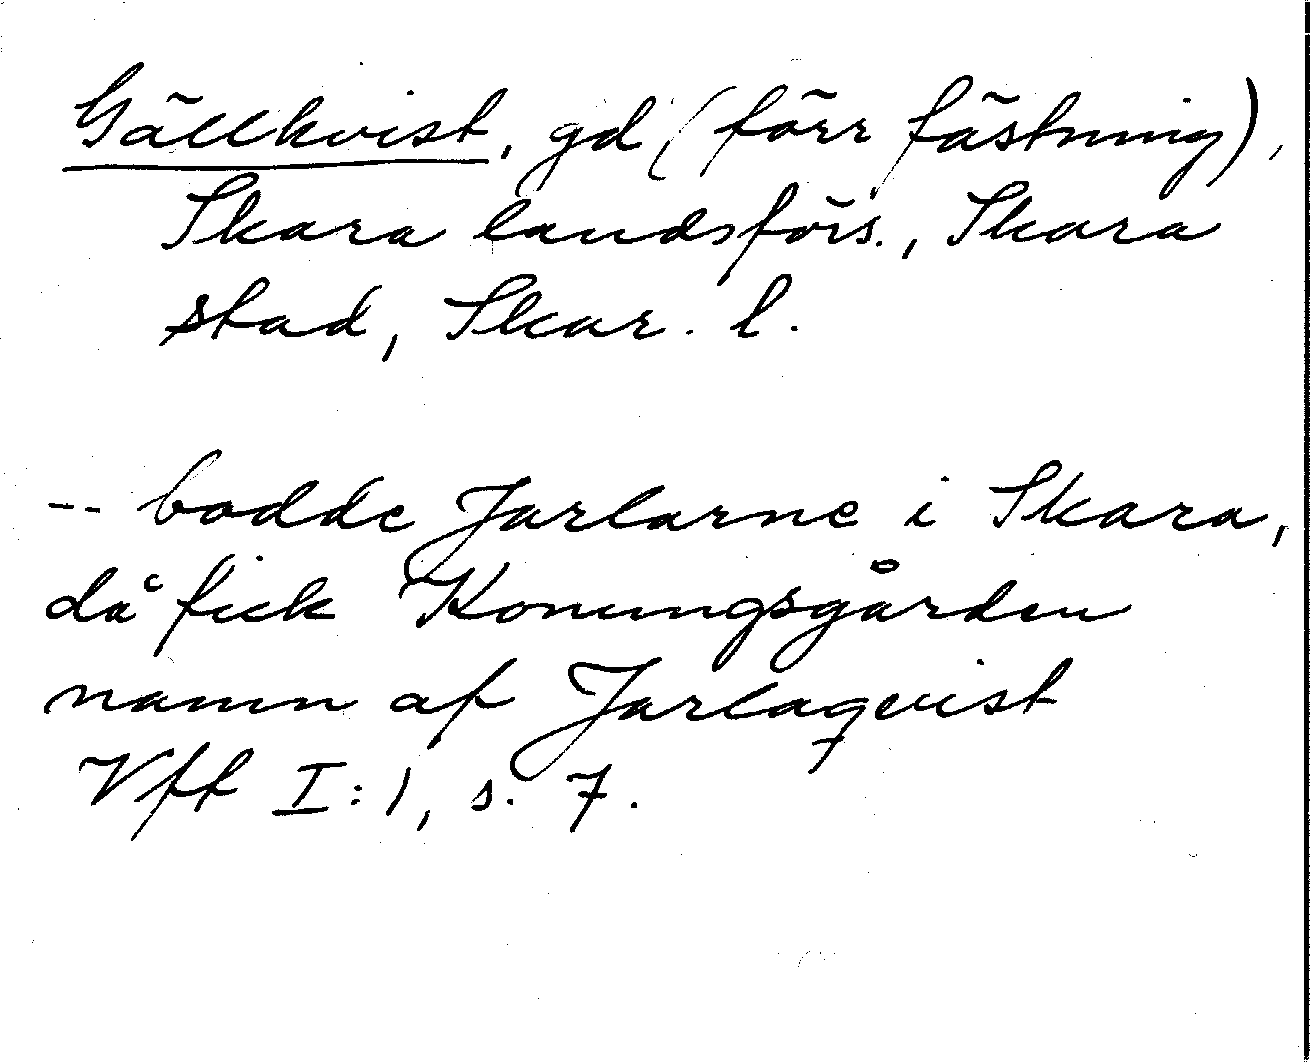 Gällkvist, gd (förr fästning),
Skara landsförs., Skara
stad, Skar. l.
-- bodde Jarlarne i Skara,
då fick Konungsgården
namn af Jarlaqvist
Vft I:1, s. 7.